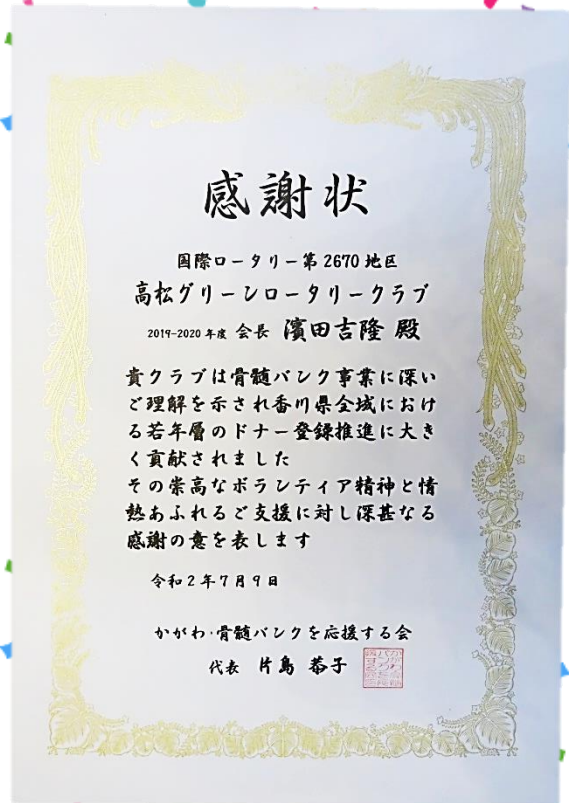 感謝状
国際ロータリー第2670地区
高松グリーンロータリークラブ
2019-2020年度 会長 濱田吉隆 殿
貴クラブは骨髄バンク事業に深い
ご理解を示され香川県全域におけ
る若年層のドナー登録推進に大き
く貢献されました
その崇高なボランティア精神と情
熱あふれるご支援に対し深甚なる
感謝の意を表します
令和2年7月9日
かがわ・骨髄バンクを応援する会
代表 片島 恭子